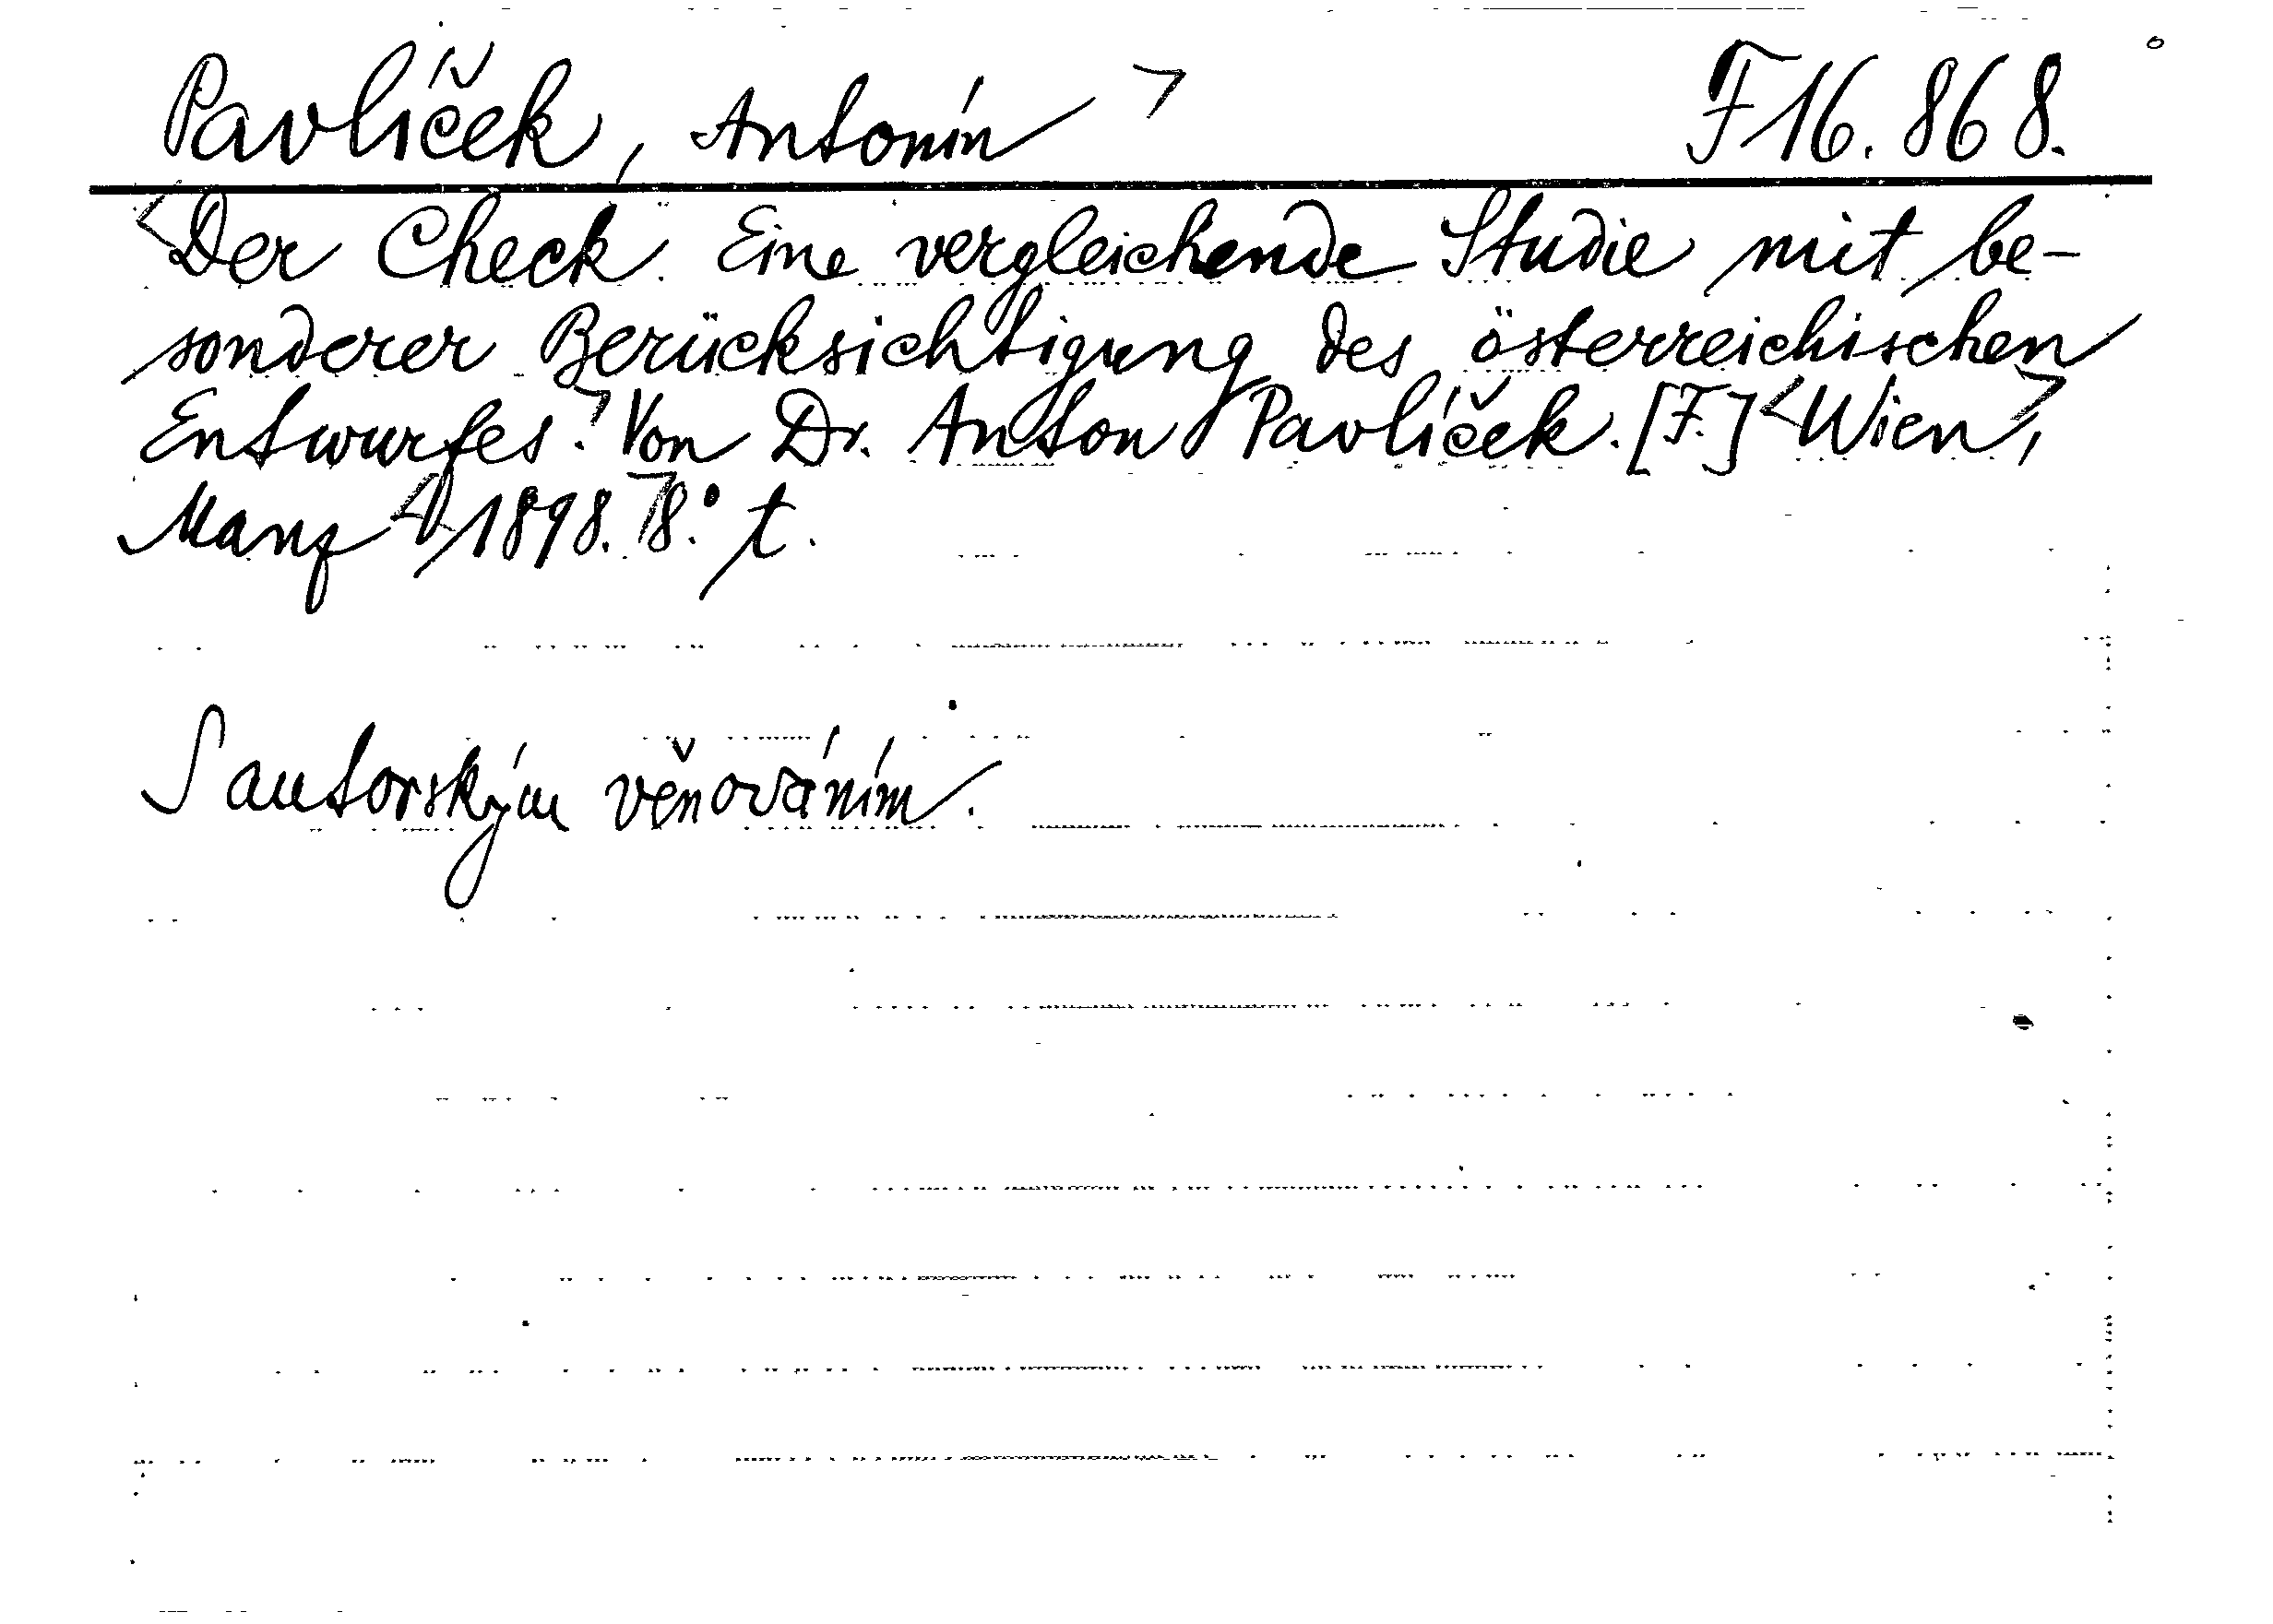 Pavlíček, Antonín > F 16.868.
<Der Check. Eine vergleichende Studie mit be-
sonderer Berücksichtigung des österreichischen
Entwurfes.> Von Dr. Anton Pavlíček. [F.] <Wien,>
Manz <1898.> 8.° t.
S autorským věnováním.